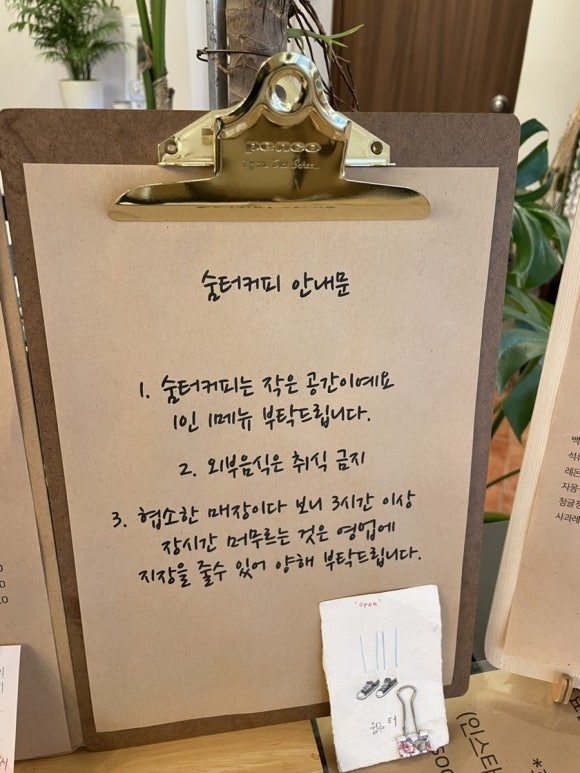 penco
숨터커피 안내문
1. 숨터커피는 작은 공간이예요
1인 1메뉴 부탁드립니다.
2. 외부음식은 취식 금지
3. 협소한 매장이다 보니 3시간 이상
장시간 머무르는 것은 영업에
지장을 줄수 있어 양해 부탁드립니다.
"open"
숨 터
백
석류
레몬
자몽
청귤청
사과레
(인스타
500